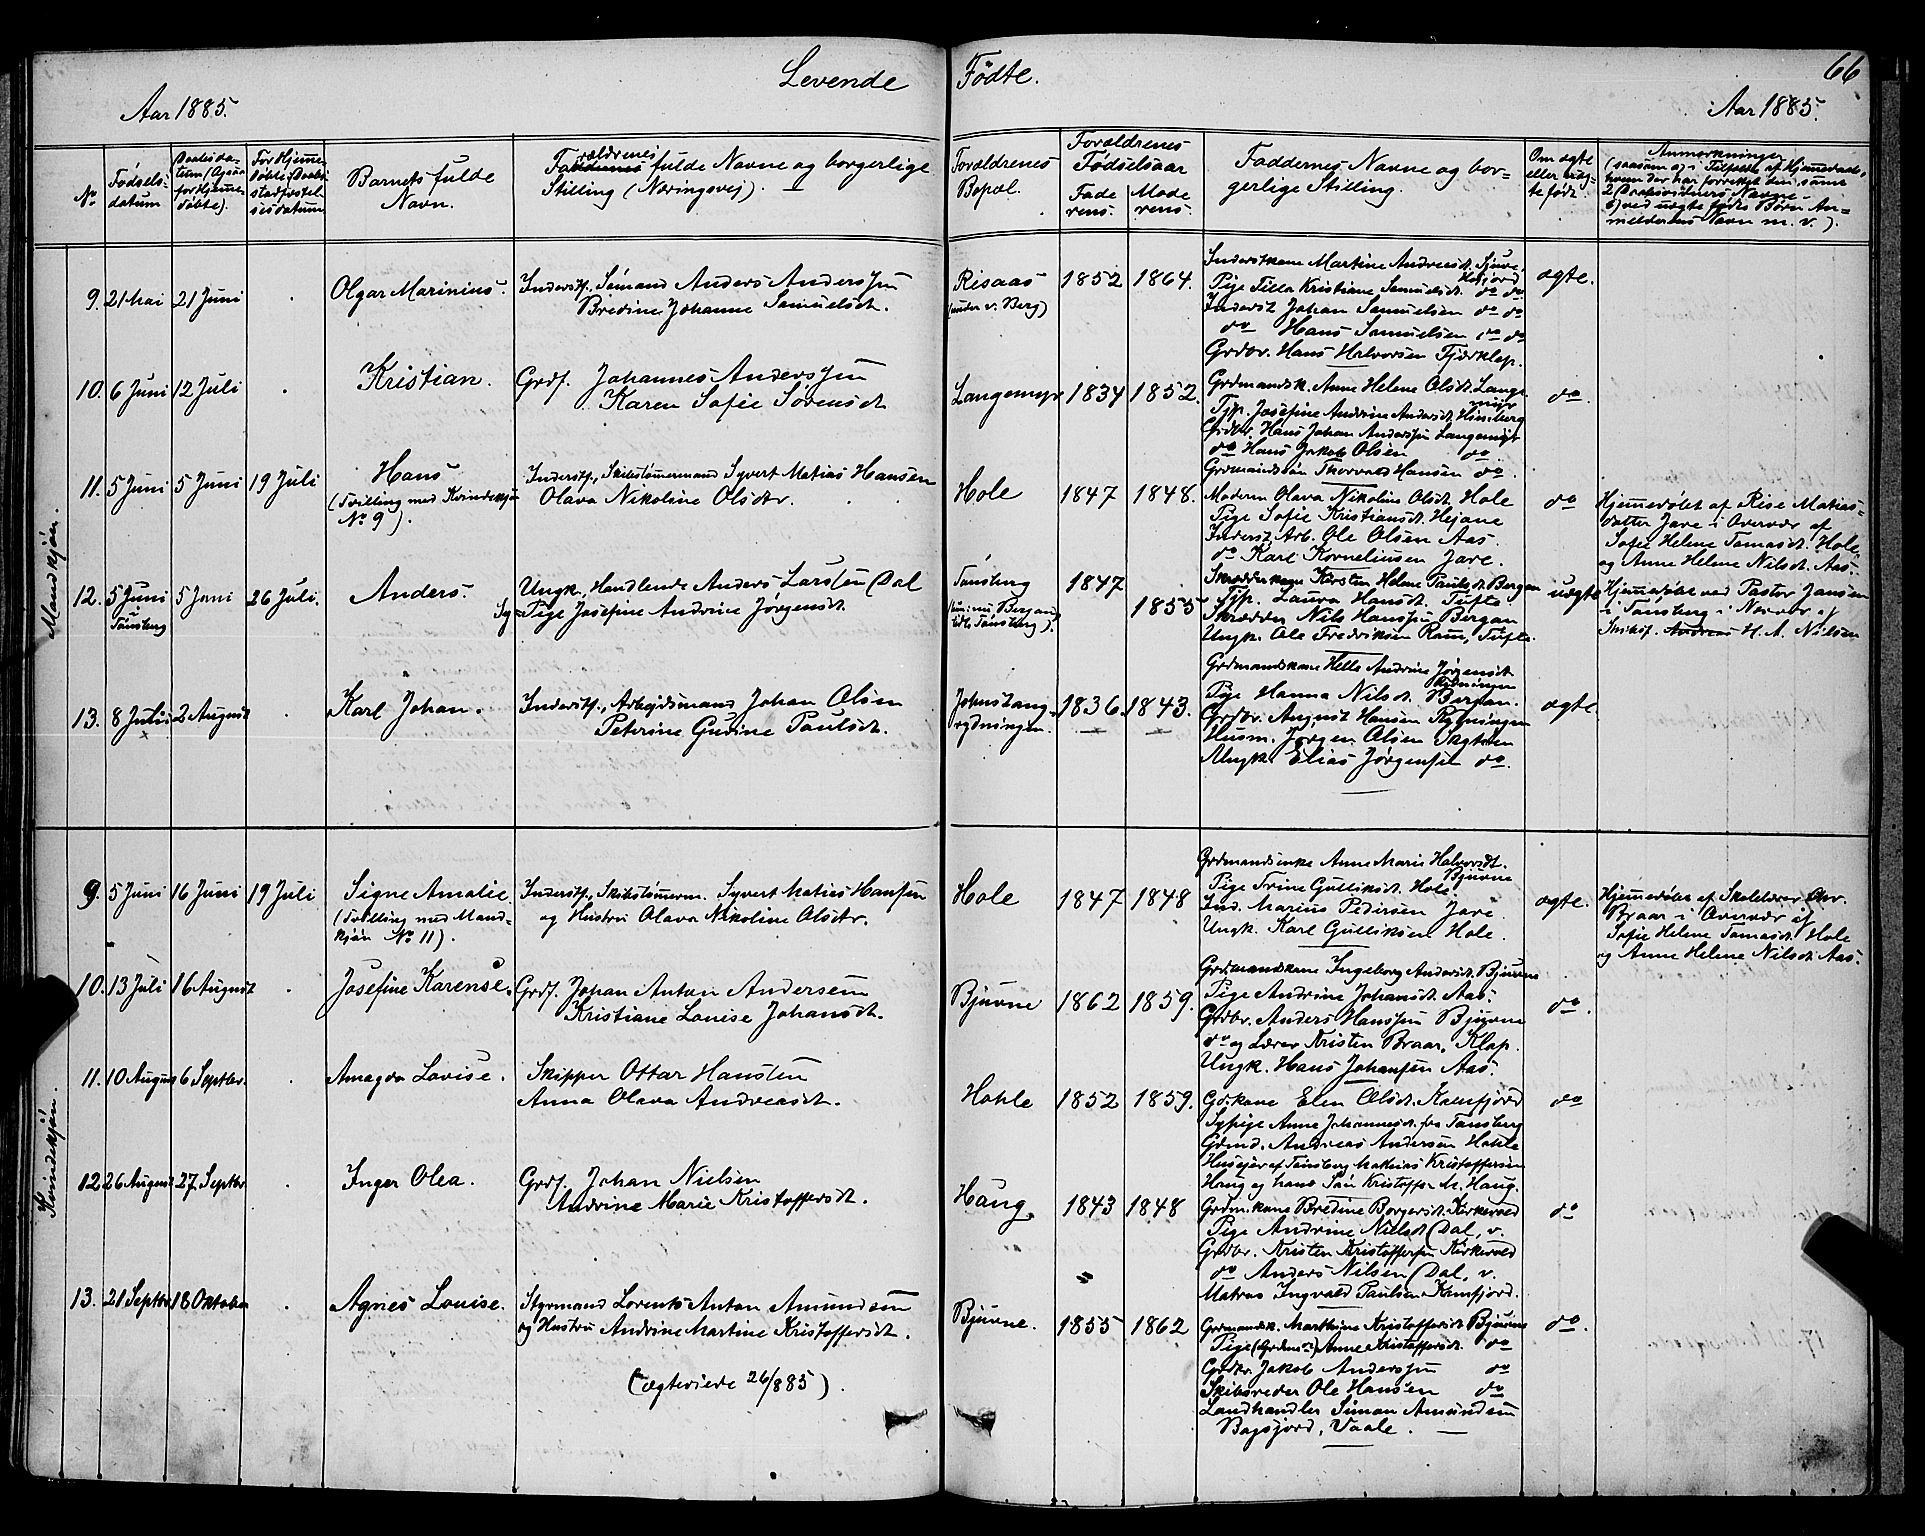 Levende Fødte. 66
Aar 1885. Aar 1885.
No
Fødsels-
datum
Daabsda-
tum (ogsaa
for Hjemme-
døbte).
For Hjemme-
døbte: Daabs-
stadfæstel-
sesdatum
Barnets fulde
Navn.
Forældrenes fulde Navne og borgerlige
Stilling (Næringsvej).
Forældrenes
Bopæl.
Forældrenes
Fødselsaar
Fade-
rens.
Mode-
rens.
Faddernes Navne og bor-
gerlige Stilling.
Om ægte
eller uæg-
te født.
Anmærkninger
(saasom a) i Tilfælde af Hjemmedaab,
hvem der har forrettet den, samt
2 Daabsvidners Navne,
b) ved uægte fødte Børn An-
melderens Navn m. v.).
Mandkjøn.
9. 21 Mai 21 Juni Olgar Marinius.
Inderst, Sømand Anders Anderssen
Bredine Johanne Samuelsdt.
Risaas
(under v. Berg)
1852 1864.
Inderstkone Martine Andreasdt. Sjuve,
Pige Tilla Kristiane Samuelsdt. do do
Inderst Johan Samuelsen do do
do Hans Samuelsen do do
Grdbr. Hans Halvorsen Fjærklep.
ægte.
10. 6 Juni 12 Juli Kristian.
Grdf. Johannes Anderssen
Karen Sofie Sørensdt
Langemyr 1834 1852.
Grdmandsk. Anne Helene Olsdt. Lange-
myr
Tjp. Josefine Andrine Andersdt.
Grdbr. Hans Johan Anderssen Langemyr
do Hans Jakob Olsen do
Grdmandssøn Thorvald Hansen do.
do.
11. 5 Juni 5 Juni 19 Juli Hans
(Tvilling med Kvindekjøn
No 9).
Inderstf., Skibstømmermand Syvert Matias Hansen
Olava Nikoline Olsdtr.
Hole 1847 1848.
Moderen Olava Nikoline Olsdt. Hole
Pige Sofie Kristiansdt. Hejane
Inderst, Arb. Ole Olsen Aas.
do. Karl Kornelíussen Jare.
do
Hjemmedøbt af Rise Matias-
datter Jare i Overvær af
Sofie Helene Tomasdt. Hole
og Anne Helene Nilsdt. Aas.
12. 5 Juni
Tønsberg
5 Juni 26 Juli. Anders.
Ungk., Handlende Anders Larsten Dal
Sy-Pige Josefine Andrine Jørgensdt
Tønsberg
1847
1855
Skrædderkone Karsten Helene Paulsdt Bergan
Tjp. Laura Hansdt. Tufte
Skrædder Nils Hanssen Bergan
Ungk. Ole Fredriksen Ram, Tufte.
uægte
Hjemmedøbt ved Pastor Jansen
i Tønsberg i Nærvær af
Skibsf. Andreas H. A. Nilsen
13. 8 Juli 2 August Karl Johan.
Inderstf., Arbejdsmand Johan Olsen
Petrine Gurine Paulsdt.
Johnstang-
rydningen.
1836. 1843.
Grdmandskone Helle Andrine Jørgensdt
Rydningen
Pige Hanna Nilsdt. Bergan.
Grdbr. August Hansen Rydningen
Husm. Jørgen Olsen Skatøen
Ungk. Elias Jørgensen do.
ægte.
Kvindekjøn.
9. 5 Juni 16 Juni 19 Juli Signe Amalie
(Tvilling med Mand-
kjøn No 11).
Inderstf., Skibstømmerm. Syvert Matias Hanssen
og Hustru Olava Nikoline Olsdtr.
Hole 1847 1848
Grdmandsenke Anne Marie Halvorsdt.
Bjuvne
Pige Trine Gulliksdt. Hole.
Ind. Marius Pedersen Jare.
Ungk. Karl Gulliksen Hole.
ægte.
Hjemmedøbt af Skolelærer Chr.
Braar i Overvær af
Sofie Helene Tomasdt. Hole
og Anne Helene Nilsdt. Aas.
10. 13 Juli 16 August Josefine Karense.
Grdf. Johan Anton Andersen
Kristiane Louise Johansdt.
Bjuvne 1862 1859.
Grdmandskone Ingeborg Andersdt. Bjuvne
Pige Andrine Johansdt. Aas.
Grdbr. Anders Hanssen Bjuvne
do og Lærer Kristen Braar, Klop.
Ungk. Hans Johansen Aas.
do.
11. 10 August 6 Septbr. Amagda Lovise.
Skipper Ottar Hansten
Anna Olava Andreasdt.
Hohle 1852 1859.
Gdkone Elen Olsdt. Kamfjord
Sypige Anne Johannesdt. fra Tønsberg
Grdmd. Andreas Andersen Hohle
Husejer af Tønsberg Mathias Kristoffersen
Haug og hans Søn Kristoffer M. Haug.
do
12 26 August 27. Septbr Inger Olea.
Grdf. Johan Nielsen
Andrine Marie Kristoffersdt.
Haug. 1843 1848
Grdm.kone Bredine Borgersdt. Kirkevold
Pige Andrine Nielsdt Dal, v.
Grdbr. Kristen Kristoffersen Kirkevold
do Anders Nilsen Dal, v.
Matros Ingvald Paulsen Kamfjord.
do
13. 21 Septbr 18 Oktober Agnes Louise.
Styrmand Lorents Anton Amundsen
og Hustru Andrine Martine Kristoffersdt.
(ægteviede 26/885).
Bjuvne. 1855 1862
Grdmandsk. Marthine Kristoffersdt. Bjuvne
Pige (Grdms.) Anne Kristoffersdt. do
Grdbr. Jakob Anderssen do
Skibsreder Ole Hansen do
Landhandler Simon Amundsen
Bogsfjord, Vaale.
do.